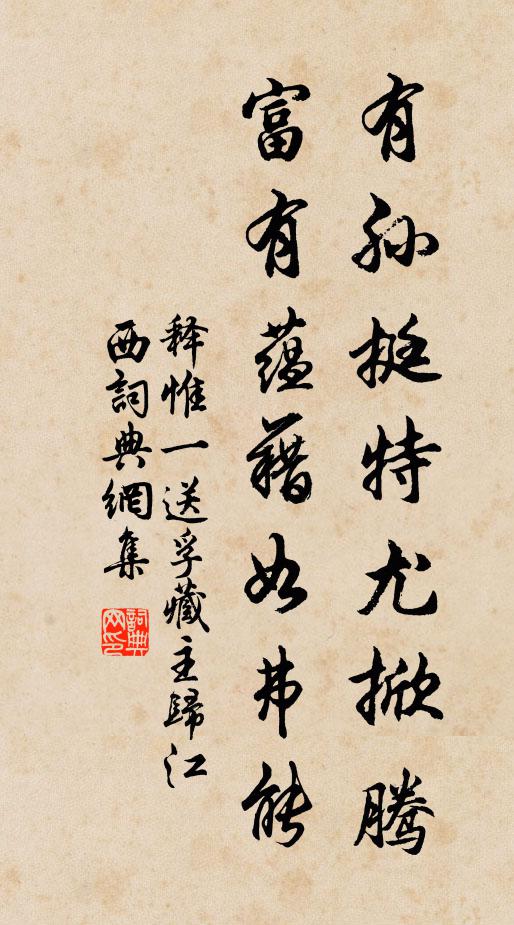 有孙挺特尤掀腾
富有蕴藉如弗能
释惟一送孚藏主歸江
西詞典網集
詞典网印